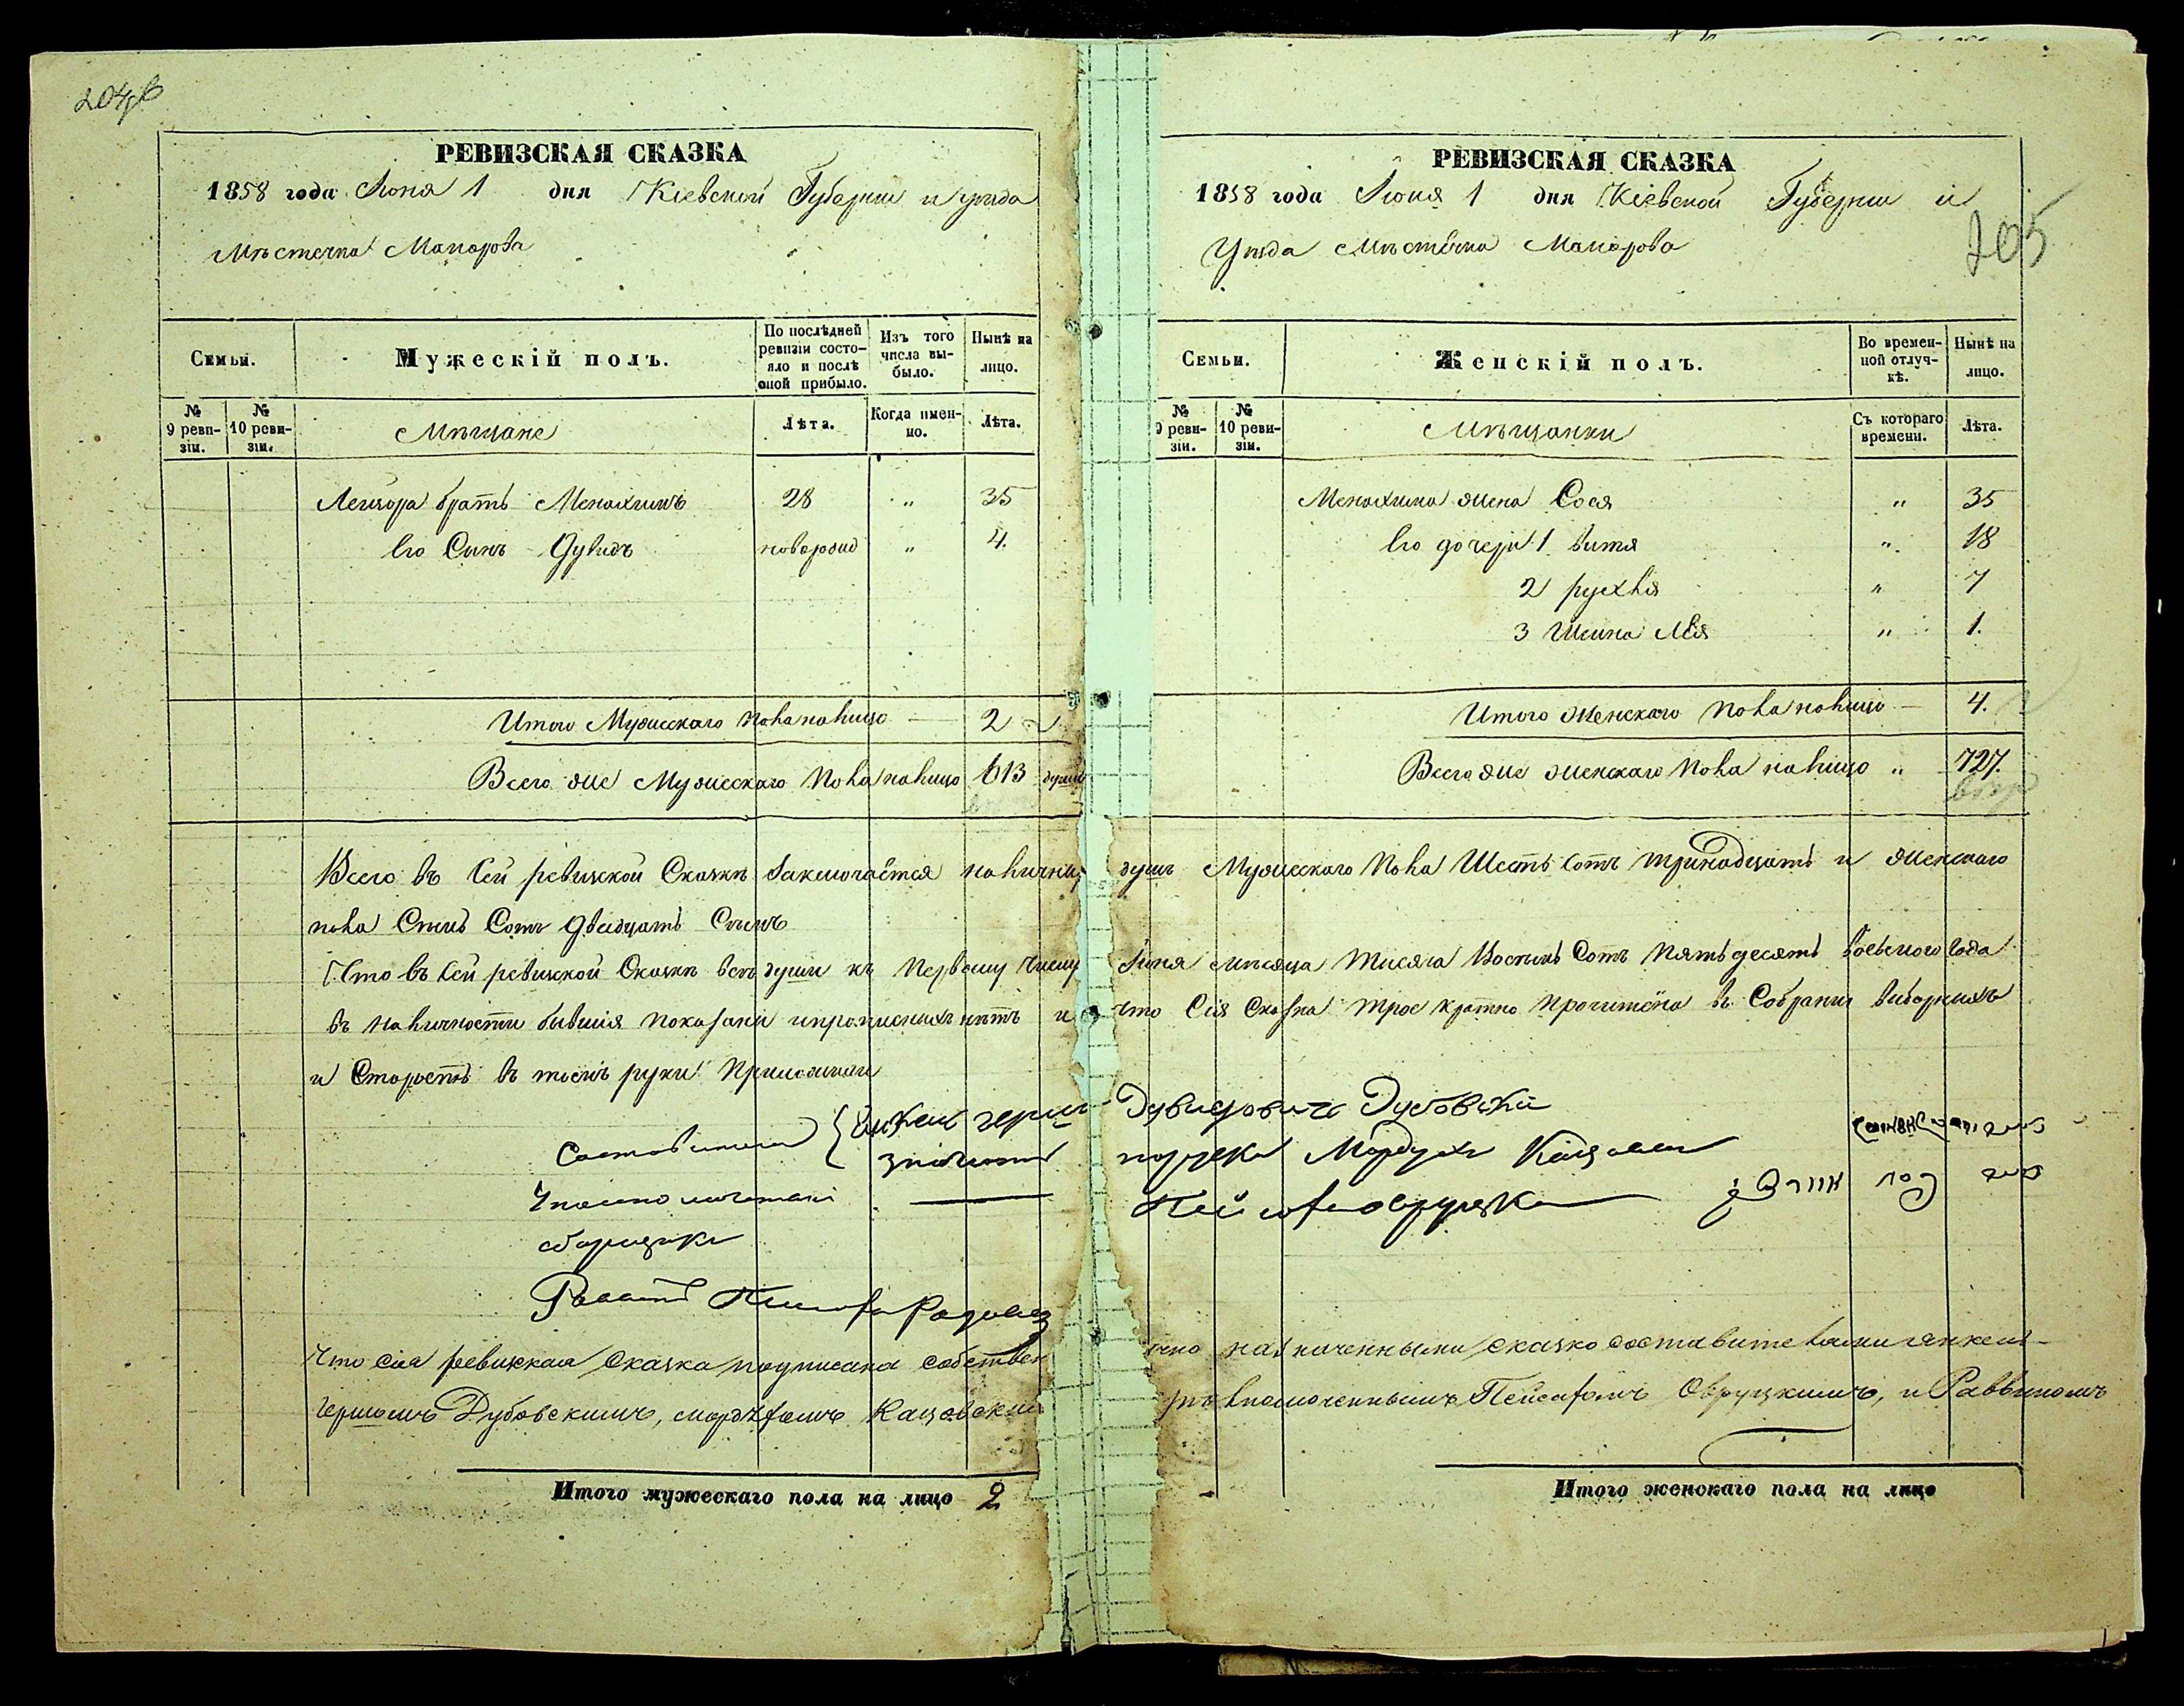 204
РЕВИЗСКАЯ СКАЗКА
1858 года Июня 1 дня Кіевской Губерніи и уѣзда
Мѣстечка Макарова
Семьи.
Мужескій полъ.
По послѣдней ревизіи состояло и послѣ оной прибыло.
Изъ того числа выбыло.
Нынѣ на лицо.
№ 9 ревизіи.
№ 10 ревизіи.
Мѣщане
Лѣта.
Когда именно.
Лѣта.
Лейзора братъ Менахимъ 28 " 35
Его Сынъ Дувидъ новорожд " 4.
Итого Мужескаго пола налицо — 2
Всего же Мужескаго пола налицо 613 душъ
РЕВИЗСКАЯ СКАЗКА
1858 года Июня 1 дня Кіевской Губерніи и
Уѣзда Мѣстечка Макарова
205
Семьи.
Женскій полъ.
Во временной отлучкѣ.
Нынѣ на лицо.
№ 9 ревизіи.
№ 10 ревизіи.
Мѣщанки
Съ котораго времени.
Лѣта.
Менахима жена Сося " 35
Его дочери 1 витя " 18
2 рухля " 7
3 Шейна Лея " 1.
Итого женскаго пола налицо — 4.
Всего же женскаго пола налицо " 727.
Всего въ сей ревизкой Сказкѣ Заключается наличныхъ душъ Мужескаго пола Шесть Сотъ тринадцать и женскаго
пола Семь Сотъ двадцать Семь
Что въ сей ревизкой Сказкѣ всѣ души къ Первому Числу Июня мѣсяца Тисяча Восемь Сотъ Пятьдесятъ восьмого года
въ наличности бывшія показани и прописныхъ нѣтъ и что Сія Сказка трое кратно прочитена въ Собраніи виборнихъ
и Старостъ въ томъ руки Приложили
Дувидовичъ Дубовский
Мордухъ
сборщикъ
Что сія ревизкая сказка подписана собствен но назначенными сказко составителями Янкель-
Гершомъ Дубовскимъ, Мордхомъ Кацовскимъ Пейсахомъ Овруцкимъ, и Раввиномъ
Итого мужескаго пола на лицо 2
Итого женскаго пола на лицо